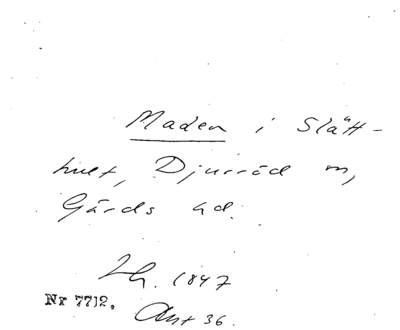 Maden i Slätt-
hult, Djurröd sn,
Gärds hd.
Lh. 1847
Nr 7712. Ant 36.